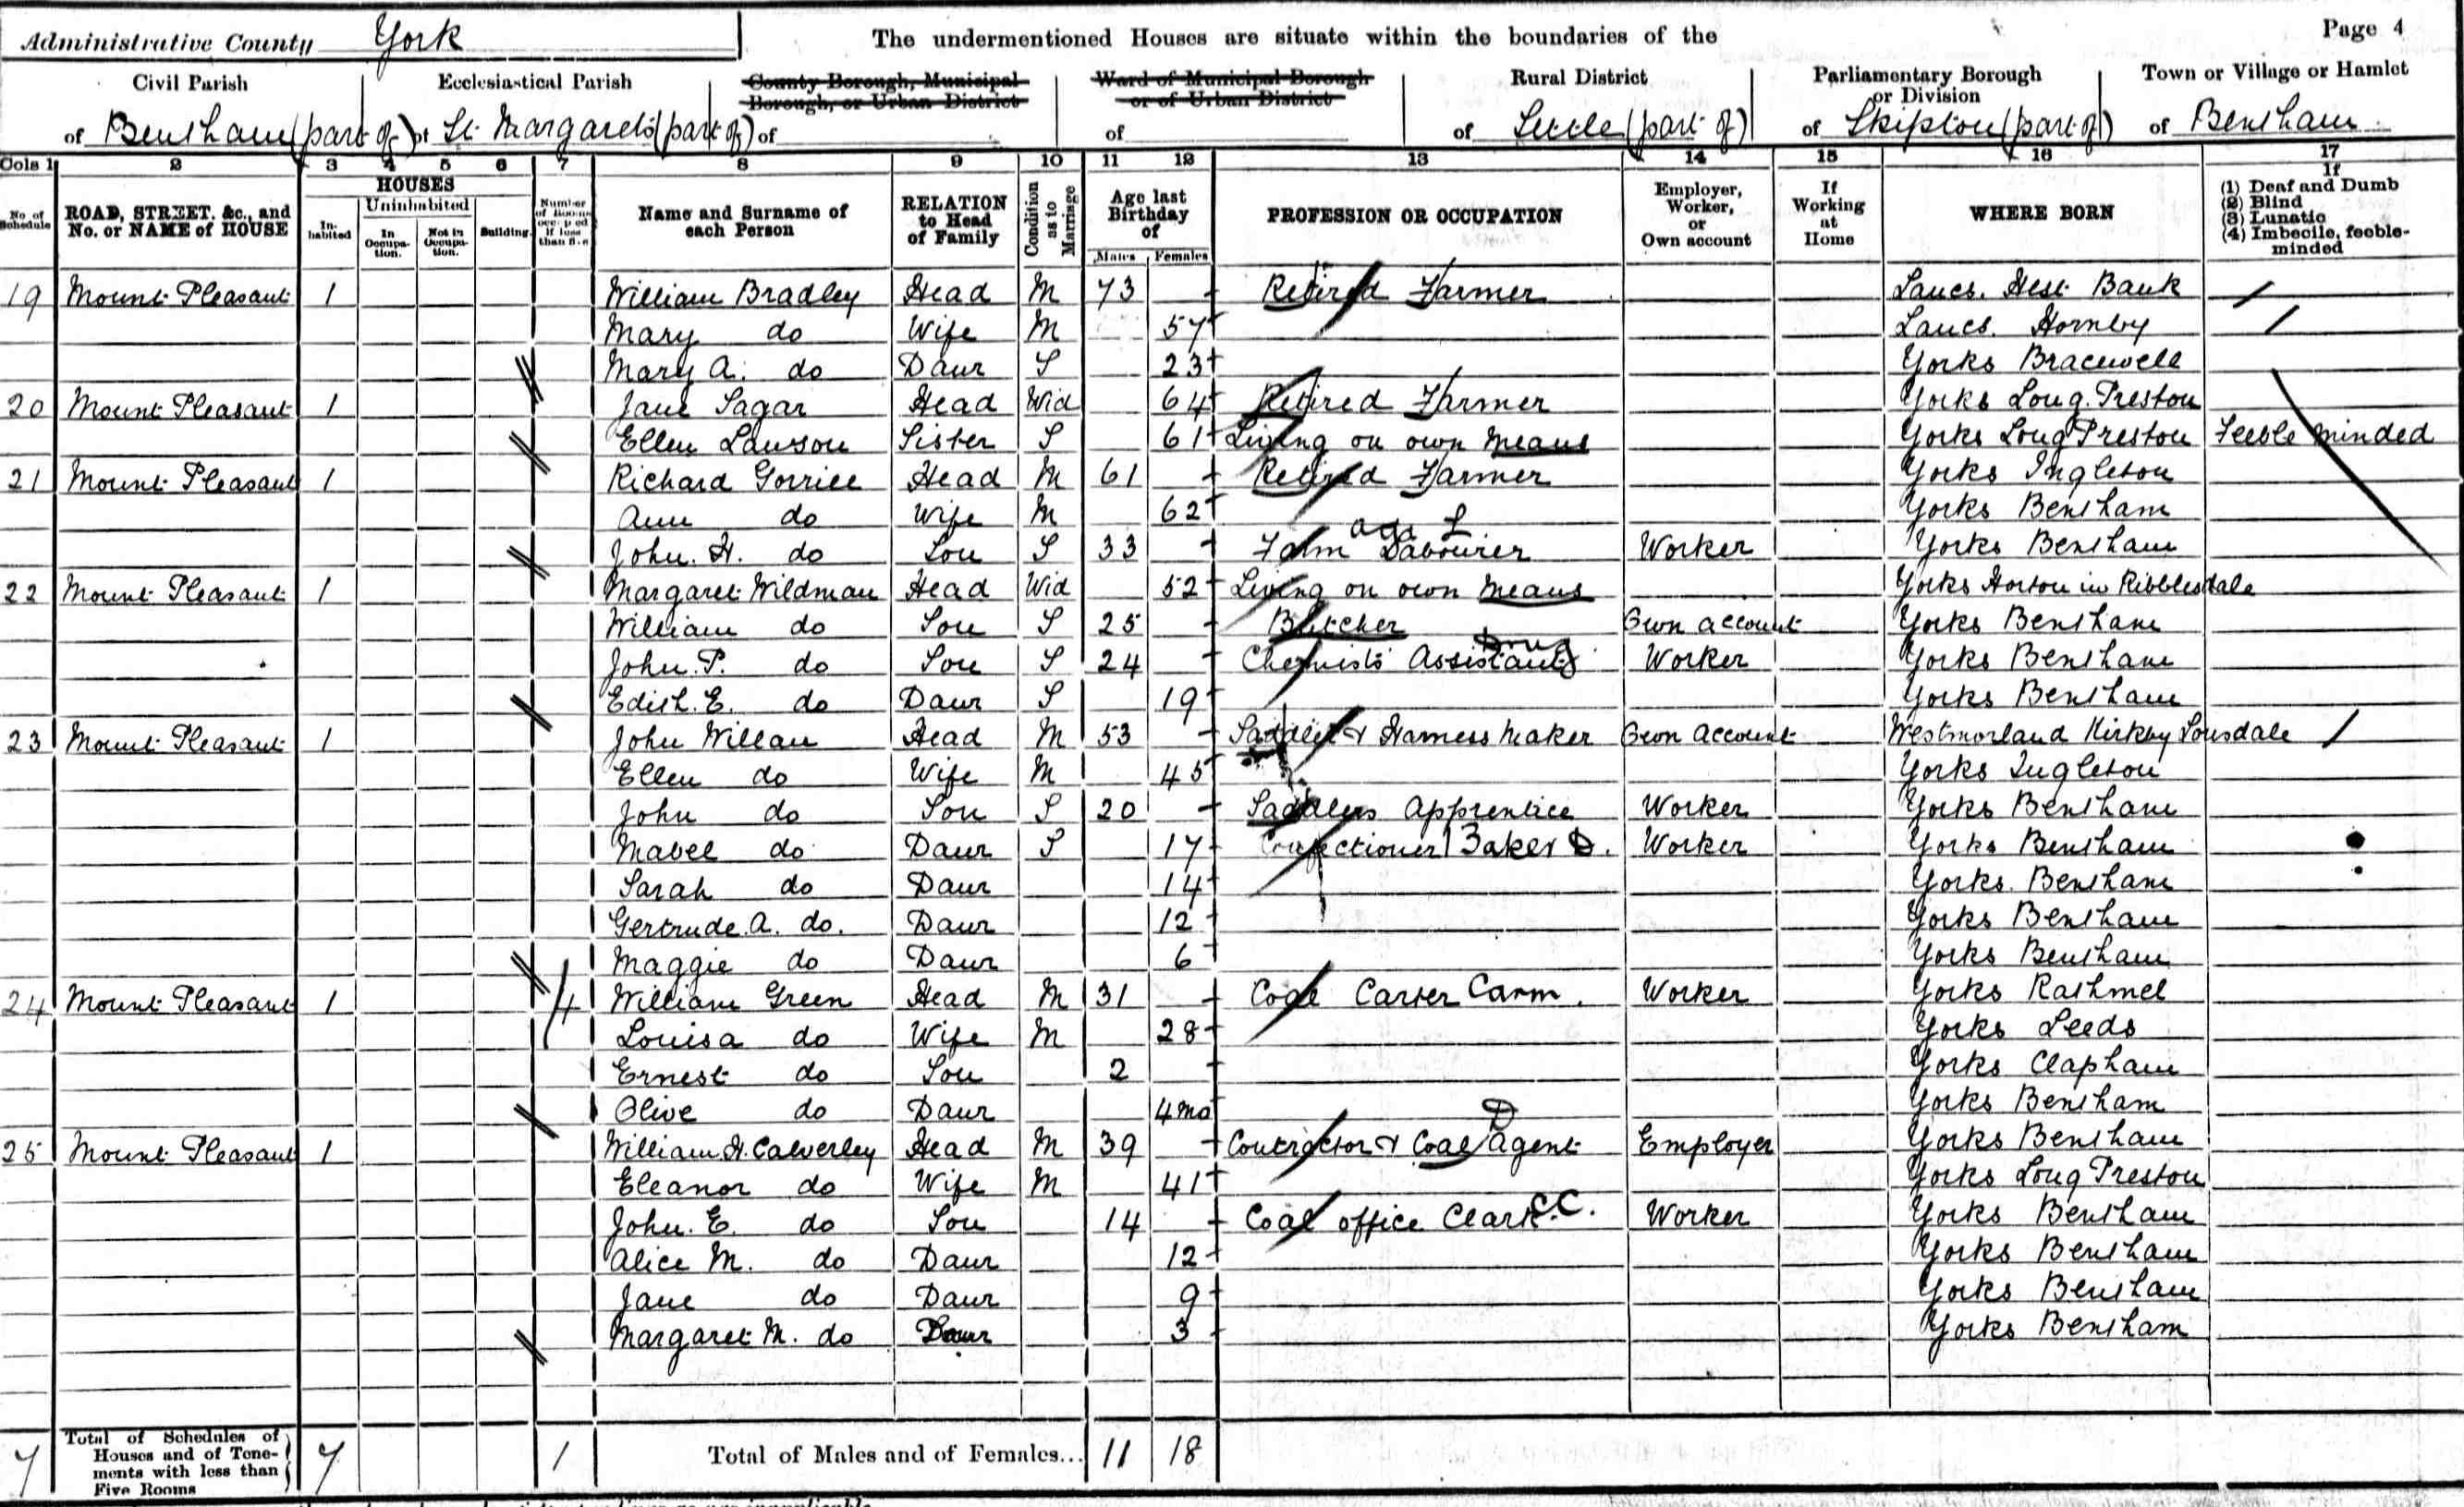 Administrative County York
The undermentioned Houses are situate within the boundaries of the
Page 4
Civil Parish
of Bentham (part of)
Ecclesiastical Parish
of St. Margarets (part of)
County Borough, Municipal
Borough, or Urban District
of
Ward of Municipal Borough
or of Urban District
of
Rural District
of Settle (part of)
Parliamentary Borough
or Division
of Skipton (part of)
Town or Village or Hamlet
of Bentham
Cols 1 2 3 4 5 6 7 8 9 10 11 12 13 14 15 16 17
No of Schedule
ROAD, STREET, &c., and No. or NAME of HOUSE
HOUSES
In-habited
Uninhabited
In Occupa-tion.
Not in Occupa-tion.
Building.
Number of Rooms occupied if less than five
Name and Surname of each Person
RELATION to Head of Family
Condition as to Marriage
Age last Birthday of
Males Females
PROFESSION OR OCCUPATION
Employer, Worker, or Own account
If Working at Home
WHERE BORN
If
(1) Deaf and Dumb
(2) Blind
(3) Lunatic
(4) Imbecile, feeble-minded
19 Mount Pleasant 1 William Bradley Head M 73 Retired Farmer Lancs. Hest Bank
Mary do Wife M 57 Lancs. Hornby
Mary A. do Daur S 23 Yorks Bracewell
20 Mount Pleasant 1 Jane Sagar Head Wid 64 Retired Farmer Yorks Long Preston
Ellen Lawson Sister S 61 Living on own means Yorks Long Preston Feeble minded
21 Mount Pleasant 1 Richard Gorrill Head M 61 Retired Farmer Yorks Ingleton
Ann do Wife M 62 Yorks Bentham
John. H. do Son S 33 Farm Labourer Worker Yorks Bentham
22 Mount Pleasant 1 Margaret Wildman Head Wid 52 Living on own means Yorks Horton in Ribblesdale
William do Son S 25 Butcher Own account Yorks Bentham
John. P. do Son S 24 Chemists Assistant Drug Worker Yorks Bentham
Edith. E. do Daur S 19 Yorks Bentham
23 Mount Pleasant 1 John Willan Head M 53 Saddler & Harness Maker Own account Westmorland Kirkby Lonsdale
Ellen do Wife M 45 Yorks Ingleton
John do Son S 20 Saddlers Apprentice Worker Yorks Bentham
Mabel do Daur S 17 Confectioner Baker D. Worker Yorks Bentham
Sarah do Daur 14 Yorks Bentham
Gertrude. A. do. Daur 12 Yorks Bentham
Maggie do Daur 6 Yorks Bentham
24 Mount Pleasant 1 4 William Green Head M 31 Coal Carter Carm. Worker Yorks Rathmel
Louisa do Wife M 28 Yorks Leeds
Ernest do Son 2 Yorks Clapham
Olive do Daur 4 mo Yorks Bentham
25 Mount Pleasant 1 William. H. Calverley Head M 39 Contractor & Coal Agent D Employer Yorks Bentham
Eleanor do Wife M 41 Yorks Long Preston
John. E. do Son 14 Coal office Clark. C.C. Worker Yorks Bentham
Alice M. do Daur 12 Yorks Bentham
Jane do Daur 9 Yorks Bentham
Margaret M. do Daur 3 Yorks Bentham
7 Total of Schedules of Houses and of Tene-ments with less than Five Rooms 7 1 Total of Males and of Females... 11 18